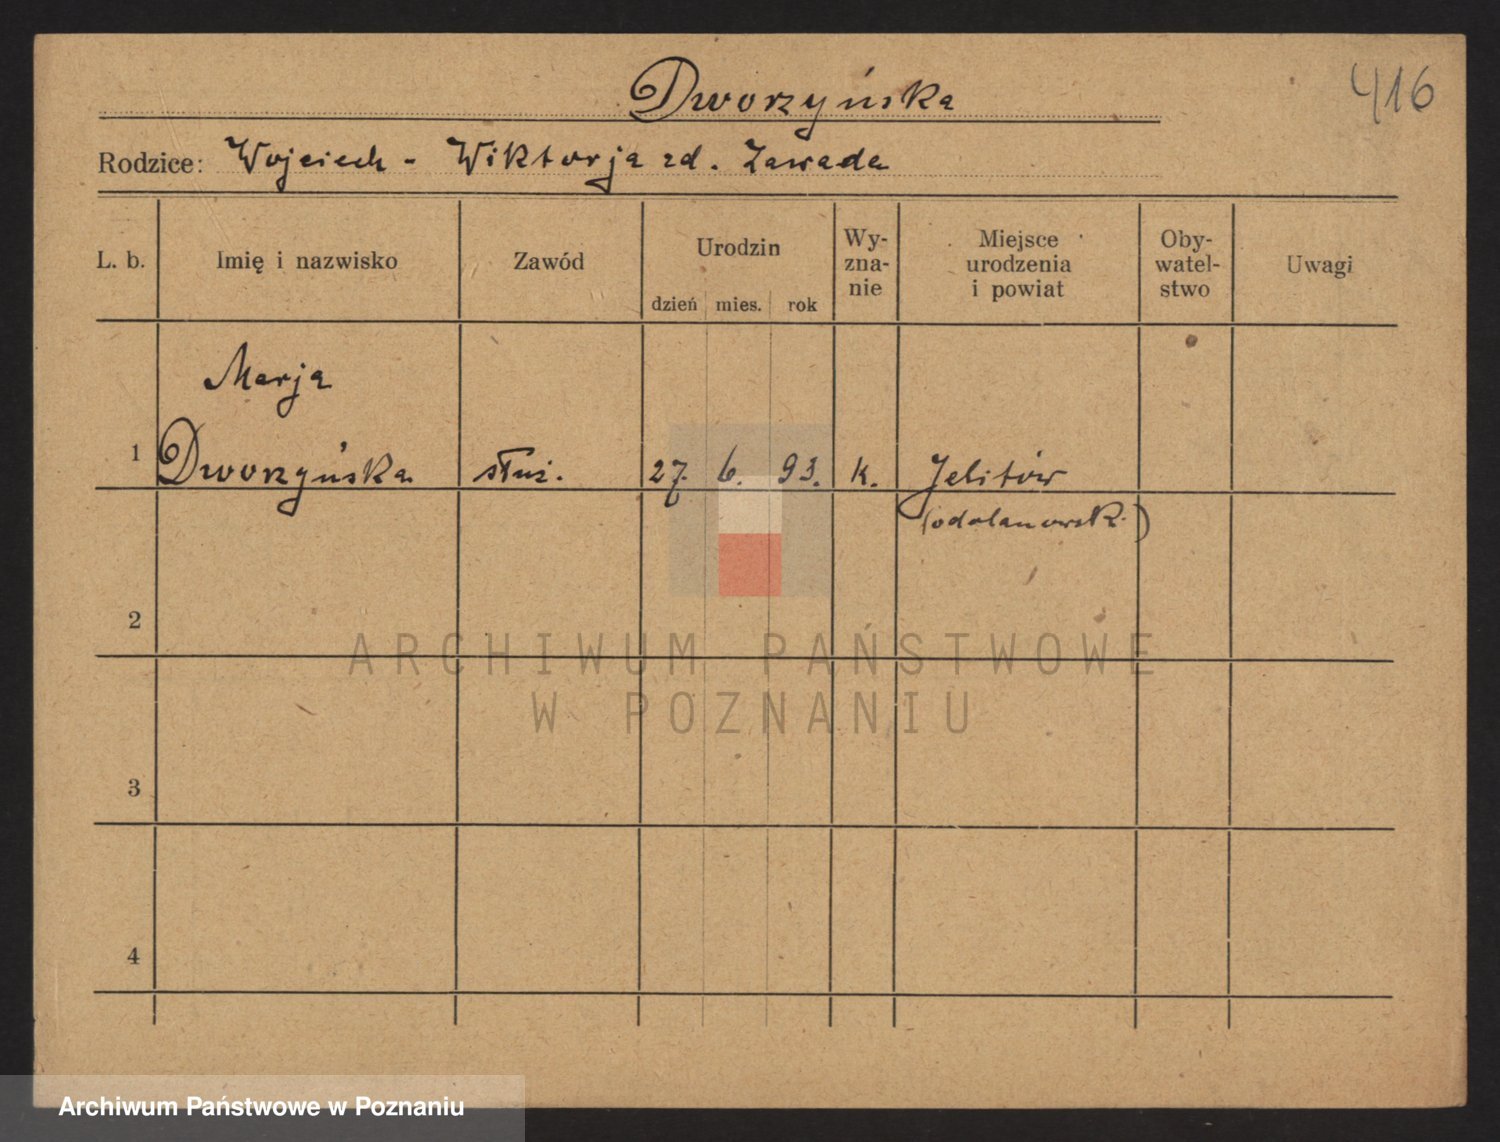 Dworzyńska
416
Rodzice: Wojciech - Wiktorja zd. Zawada
L. b. Imię i nazwisko Zawód Urodzin dzień mies. rok Wy-zna-nie Miejsce urodzenia i powiat Oby-watel-stwo Uwagi
Marja
1 Dworzyńska służ. 27. 6. 93. k. Jelitów
(odolanowsk.)
2
ARCHIWUM PAŃSTWOWE
W POZNANIU
3
4
Archiwum Państwowe w Poznaniu